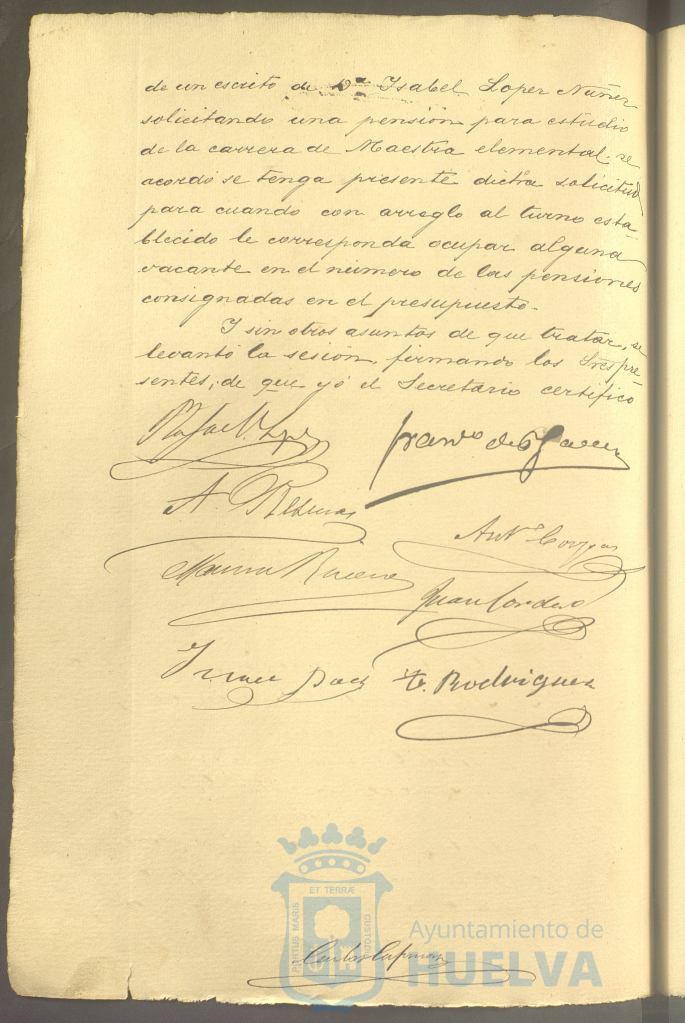 de un escrito de Dª Isabel Lopez Nuñez
solicitando una pensión para estudio
de la carrera de Maestra elemental; se
acordó se tenga presente dicha solicitud
para cuando con arreglo al turno esta-
blecido le corresponda ocupar alguna
vacante en el número de las pensiones
consignadas en el presupuesto.-
Y sin otros asuntos de que tratar, se
levantó la sesión, firmando los Sres pre-
sentes, de que yó el Secretario certifico
Rafael Lopez
A.
Manuel
Juan Cordero
T. Rodriguez
ET TERRÆ
PORTUS MARIS
CUSTODIA
Ayuntamiento de
HUELVA
Carlos